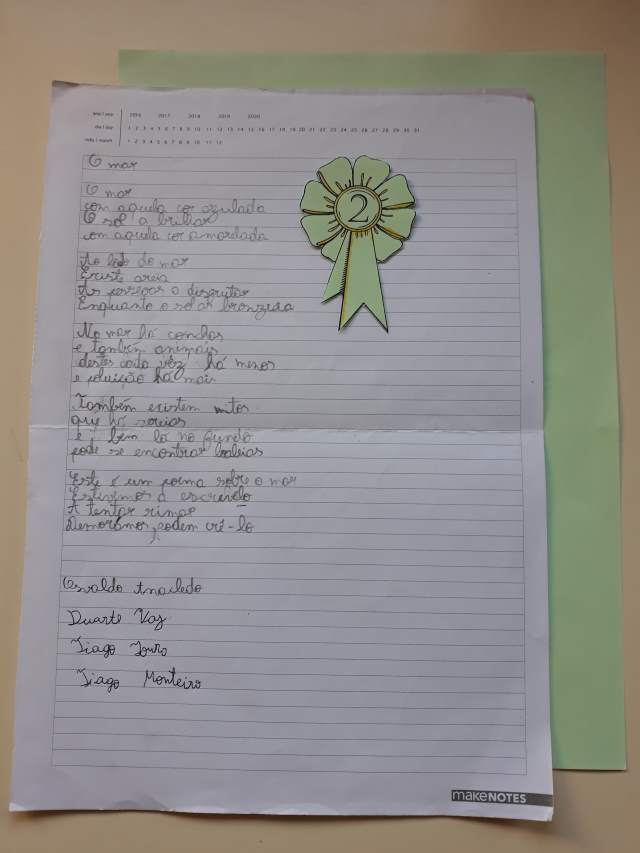 ano / year 2016 2017 2018 2019 2020
dia / day 1 2 3 4 5 6 7 8 9 10 11 12 13 14 15 16 17 18 19 20 21 22 23 24 25 26 27 28 29 30 31
mês / month 1 2 3 4 5 6 7 8 9 10 11 12
O mar
2
O mar
com aquela cor azulada
O sol a brilhar
com aquela cor amarelada
Ao lado do mar
Existe areia
As pessoas a disfrutar
Enquanto o sol as bronzeia
No mar há conchas
e também animais
destes cada vez há menos
e poluição há mais
Também existem mitos
que há sereias
e bem lá no fundo
pode se encontrar baleias
Este é um poema sobre o mar
Estivemos a escrevê-lo
A tentar rimar
Demorámos, podem crê-lo
Osvaldo
Duarte Vaz
Tiago
Tiago Monteiro
makeNOTES